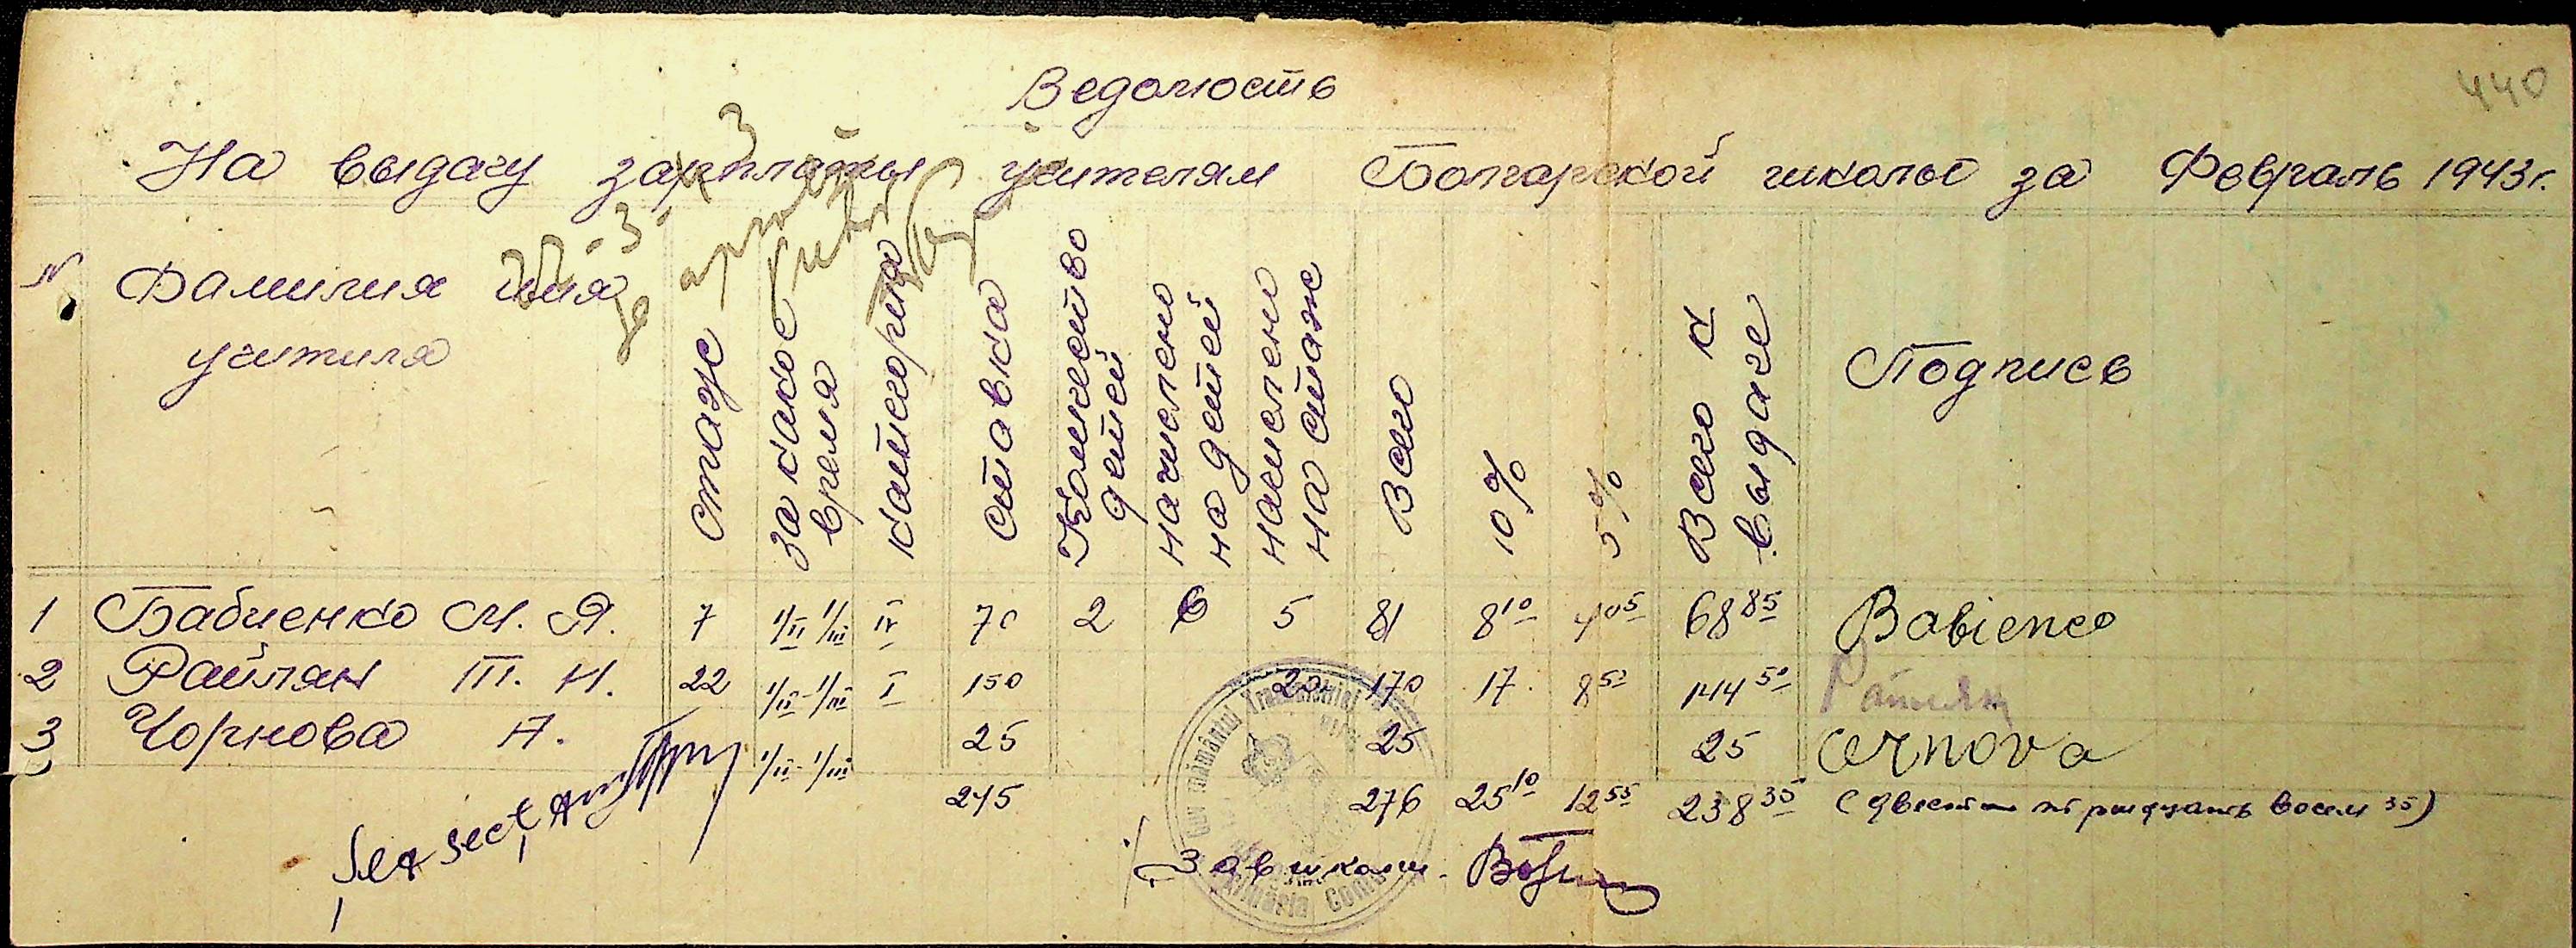 440
Ведомость
На выдачу зарплаты учителям Болгарской школы за Февраль 1943 г.
№ Фамилия имя учителя стаж за какое время категория ставка Количество детей начислено на детей начислено на стаж Всего 10% 5% Всего к выдаче Подпись
1 Бабиенко М. Я. 7 1/II 1/III IV 70 2 6 5 81 8 10 4 05 68 85 Babienco
2 Райлян Т. Н. 22 1/II-1/III I 150 20 170 17. 8 50 144 50 Райлян
3 Чорнова А. 1/II-1/III 25 25 25 Cernova
245 276 25 10 12 55 238 35 (двести тридцать восем 35)
Зав школ.
Guvernământul Transnistriei
Primăria Com